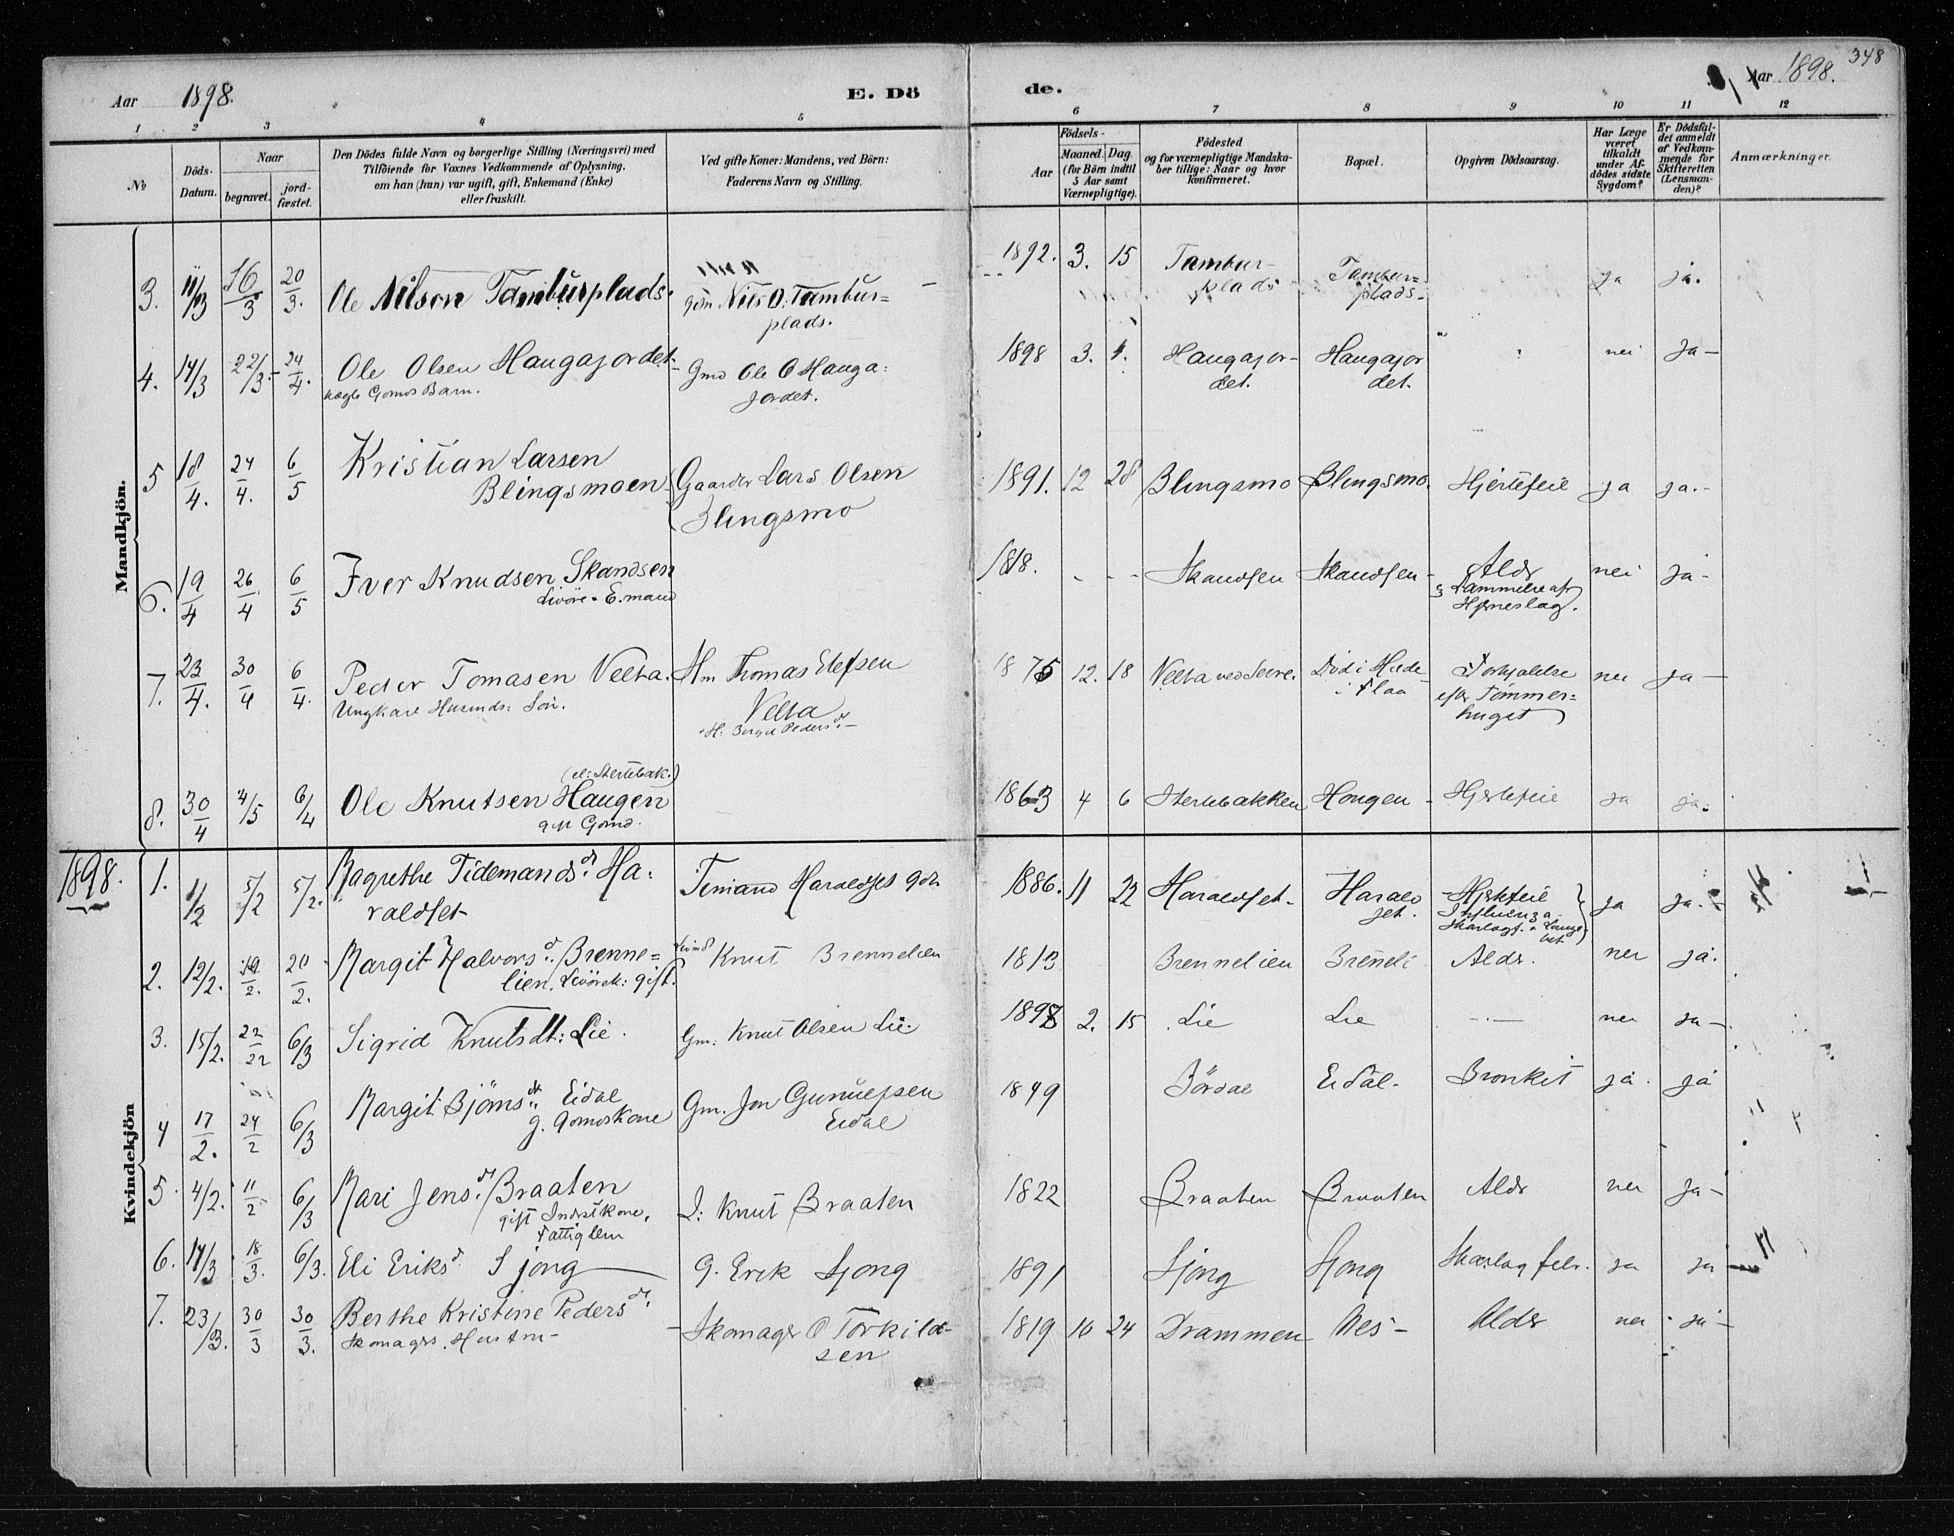 Aar 1898. E. Dö de. Aar 1898. 348
1 2 3 4 5 6 7 8 9 10 11 12
No
Döds-Datum.
Naar
begravet.
jord-fæstet.
Den Dödes fulde Navn og borgerlige Stilling (Næringsvei) med
Tilföiende for Voxnes Vedkommende af Oplysning,
om han (hun) var ugift, gift, Enkemand (Enke)
eller fraskilt.
Ved gifte Koner: Mandens, ved Börn:
Faderens Navn og Stilling.
Födsels-
Aar
Maaned. Dag.
(for Börn indtil
5 Aar samt
Værnepligtige).
Födested
og for værnepligtige Mandska-
ber tillige: Naar og hvor
konfirmeret.
Bopæl.
Opgiven Dödsaarsag.
Har Læge
været
tilkaldt
under Af-
dödes sidste
Sygdom?
Er Dödsfal-
det anmeldt
af Vedkom-
mende for
Skifteretten
(Lensman-
den)?
Anmærkninger.
Mandkjön.
3. 11/3 16/3 20/3. Ole Nilsen Tamburplads. Gdm Niels O. Tambur=
plads.
1892. 3. 15 Tambur-
plads
Tambur=
plads.
ja ja.
4. 14/3 22/3. 24/4. Ole Olsen Haugajordet
Gmds Barn.
Gmd Ole O Hauga=
jordet.
1898 3. 4. Haugajor-
det.
Haugajor
det.
nei Ja-
5 18/4. 24/4. 6/5 Kristian Larsen
Blingsmoen
Gaardbr Lars Olsen
Blingsmo
1891. 12 28 Blingsmo Blingsmo. Hjertefeil ja ja.-
6. 19/4 26/4 6/5 Iver Knudsen Skandsen
Livöre. E.mand
1818. - - - Skandsen Skandsen - Aldr
og Lammelse aft
Hjerneslag.
nei ja-
7. 23/4. 30/4 6/4. Peder Tomasen Velta.
Ungkarl Husmds: Sön.
Hm Thomas Elefsen
Velta
1875 12. 18 Velta ved Sevre. Död i Hilde
i Flaa
Forkjölelse
efter Tömmer=
hugst
nei ja-
8. 30/4 4/5 6/4 (el: Stertebak.)
Ole Knutsen Haugen
gift Gbmd.
1863 4 6 Stertebakken Hougen - Hjertefeil ja ja.
1898.
Kvindekjön
1. 1/2 5/2 5/2. Margrethe Tidemandsdt. Ha=
raldset
Temand Haraldset gdbr
1886. 11 22 Haraldset- Harald
set.
Hjertefeil
Influenza
Skarlagf. + Lunge
bet
ja ja.-
2. 12/2. 19/2. 20/2. Margit Halvorsdt. Brenne=
lien. Livörek: gift.
Knut Brennelien
1813 Brennelien Brenneli Aldr. nei ja.
3. 15/2. 22/22 6/3 Sigrid Knutsdt: Lie. Gm. Knut Olsen Lie
1898 2. 15 Lie Lie - - nei ja-
4 17/2. 24/2 6/3 Margit Björnsdt. Eidal
g. Gmdskone
Gm. Jon Gunnufsen
Eidal
1849 Bördal Eidal- Bronkit ja ja
5 4/2. 11/2 6/3 Mari Jensdt. Braaten
gift Indstkone,
Fattiglem
I: Knut Braaten
1822 Braaten Braaten Aldr nei ja-
6. 14/3 18/3. 6/3. Eli Eriksdt. Sjong G. Erik Sjong
1891 Sjong Sjong Skarlagfebr. ja ja
7. 23/3. 30/3 30/3. Berthe Kristine Pedersdt.
Skomagrs. Hustru-
Skomager O Torkild-
sen
1819 10 24 Drammen Nes- Aldr nei ja-